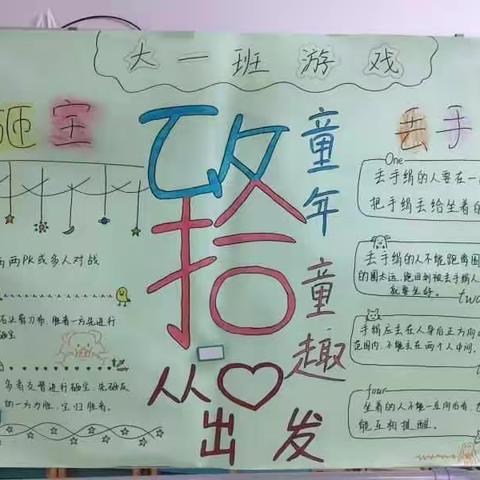 大一班游戏
砸宝
两两PK或多人对战
石头剪刀布,胜者一方先进行
砸宝。
多者交替进行砸宝,先砸反
的一方为胜,宝归胜者。
致
拾
童年童趣
从♡
出发
丢手
One
丢手绢的人要在一
把手绢丢给坐着的
丢手绢的人不能跑离圆
的圈太远,跑回到被丢手绢人
就要坐好。
two
手绢应丢在人身后正方向
范围内,不能丢在两个人中间。
four
坐着的人不能一直向后看,
能互相提醒。